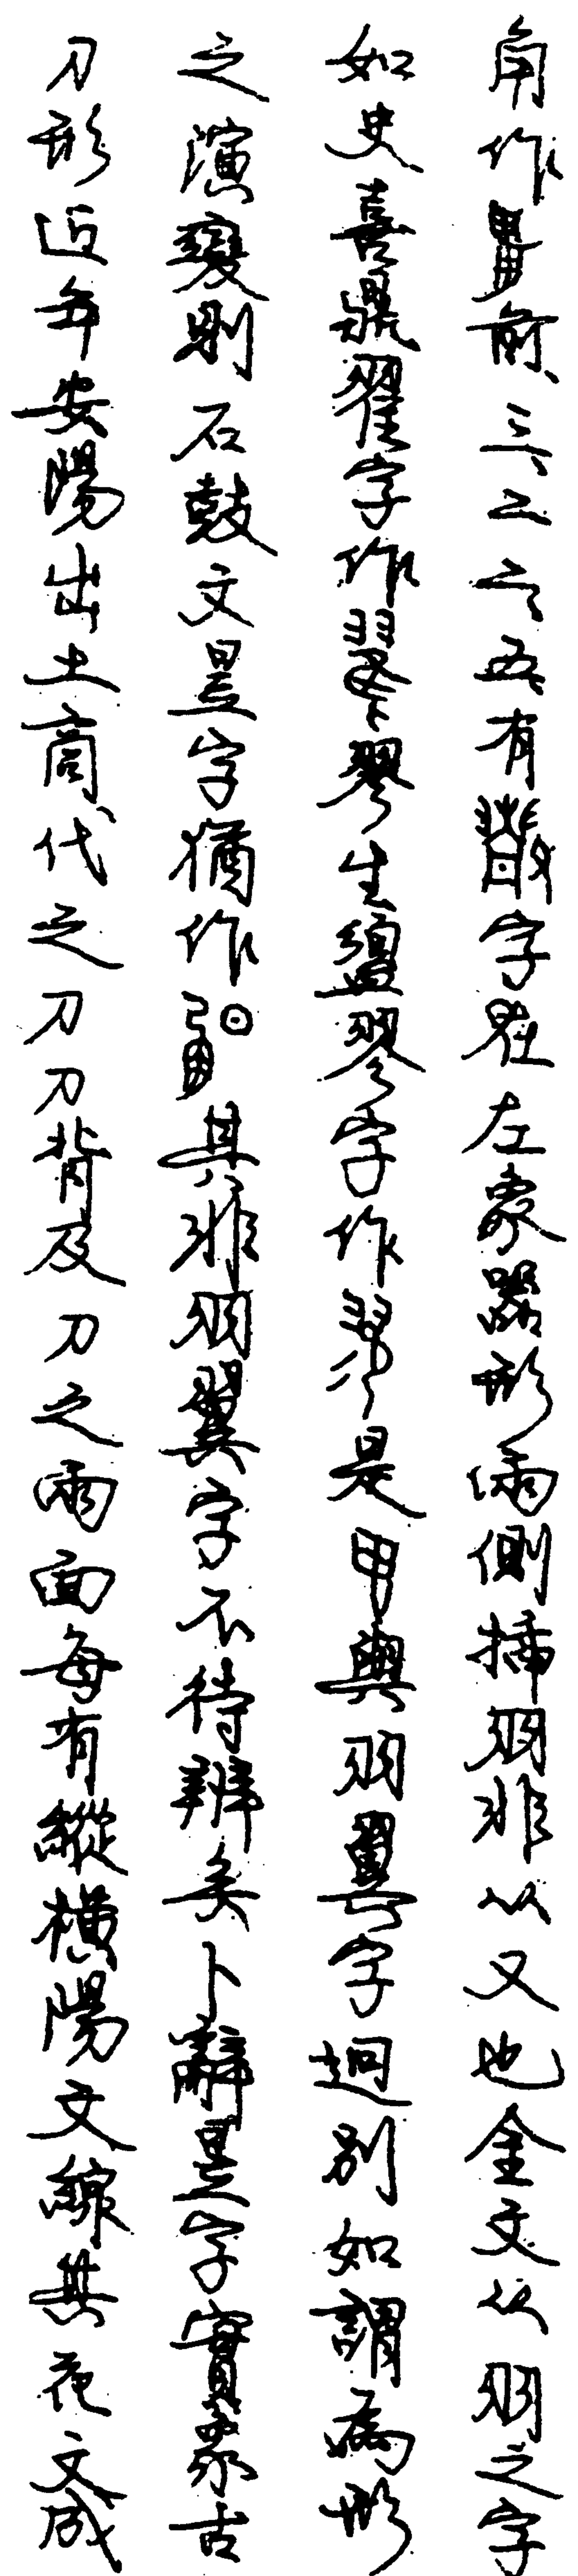 角作前三二六五有字左象器形兩側插羽非从又也金文从羽之字
如史喜鼎翟字作翏生盨翏字作是甲與羽翼字迥別如謂為形
之演變則石鼓文字猶作其非羽翼字不待辨矣卜辭字實象古
刀形近年安陽出土商代之刀刀背及刀之兩面每有縱橫陽文線其花文成